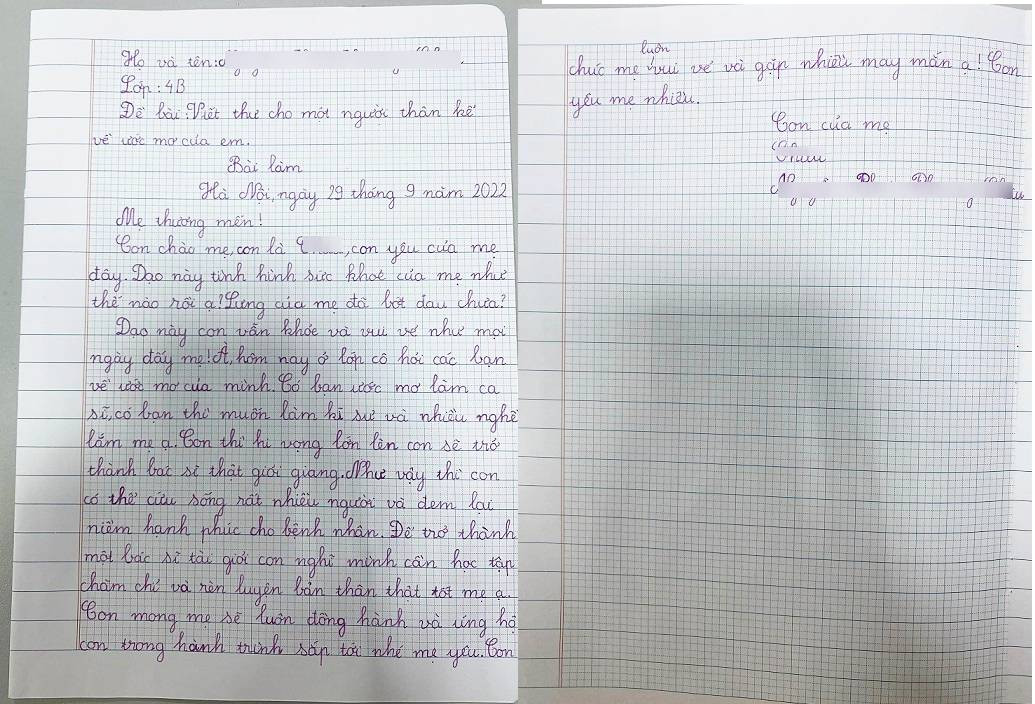 Họ và tên:
Lớp: 4B
Đề bài: Viết thư cho một người thân kể
về ước mơ của em.
Bài làm
Hà Nội, ngày 29 tháng 9 năm 2022
Mẹ thương mến!
Con chào mẹ, con là, con yêu của mẹ
đây. Dạo này tình hình sức khoẻ của mẹ như
thế nào rồi ạ! Lưng của mẹ đã bớt đau chưa?
Dạo này con vẫn khỏe và vui vẻ như mọi
ngày đấy mẹ! À, hôm nay ở lớp cô hỏi các bạn
về ước mơ của mình. Có bạn ước mơ làm ca
sĩ, có bạn thì muốn làm kĩ sư và nhiều nghề
lắm mẹ ạ. Con thì hi vọng lớn lên con sẽ trở
thành bác sĩ thật giỏi giang. Như vậy thì con
có thể cứu sống rất nhiều người và đem lại
niềm hạnh phúc cho bệnh nhân. Để trở thành
một bác sĩ tài giỏi con nghĩ mình cần học tập
chăm chỉ và rèn luyện bản thân thật tốt mẹ ạ.
Con mong mẹ sẽ luôn đồng hành và ủng hộ
con trong hành trình sắp tới nhé mẹ yêu. Con
chúc mẹ luôn vui vẻ và gặp nhiều may mắn ạ! Con
yêu mẹ nhiều.
Con của mẹ